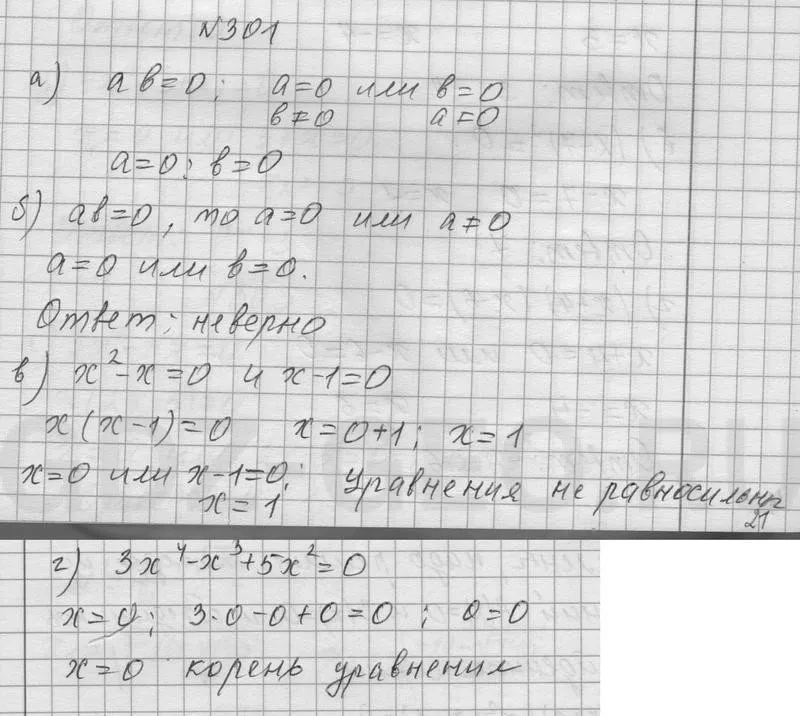 №301
а) ав=0; а=0 или в=0
в≠0 а=0
а=0; в=0
б) ав=0, то а=0 или а≠0
а=0 или в=0.
Ответ: неверно
в) x²-x=0 и x-1=0
x(x-1)=0 x=0+1; x=1
x=0 или x-1=0; уравнения не равносильны
x=1
21
г) 3x⁴-x³+5x²=0
x=0; 3·0-0+0=0; 0=0
x=0 корень уравнения